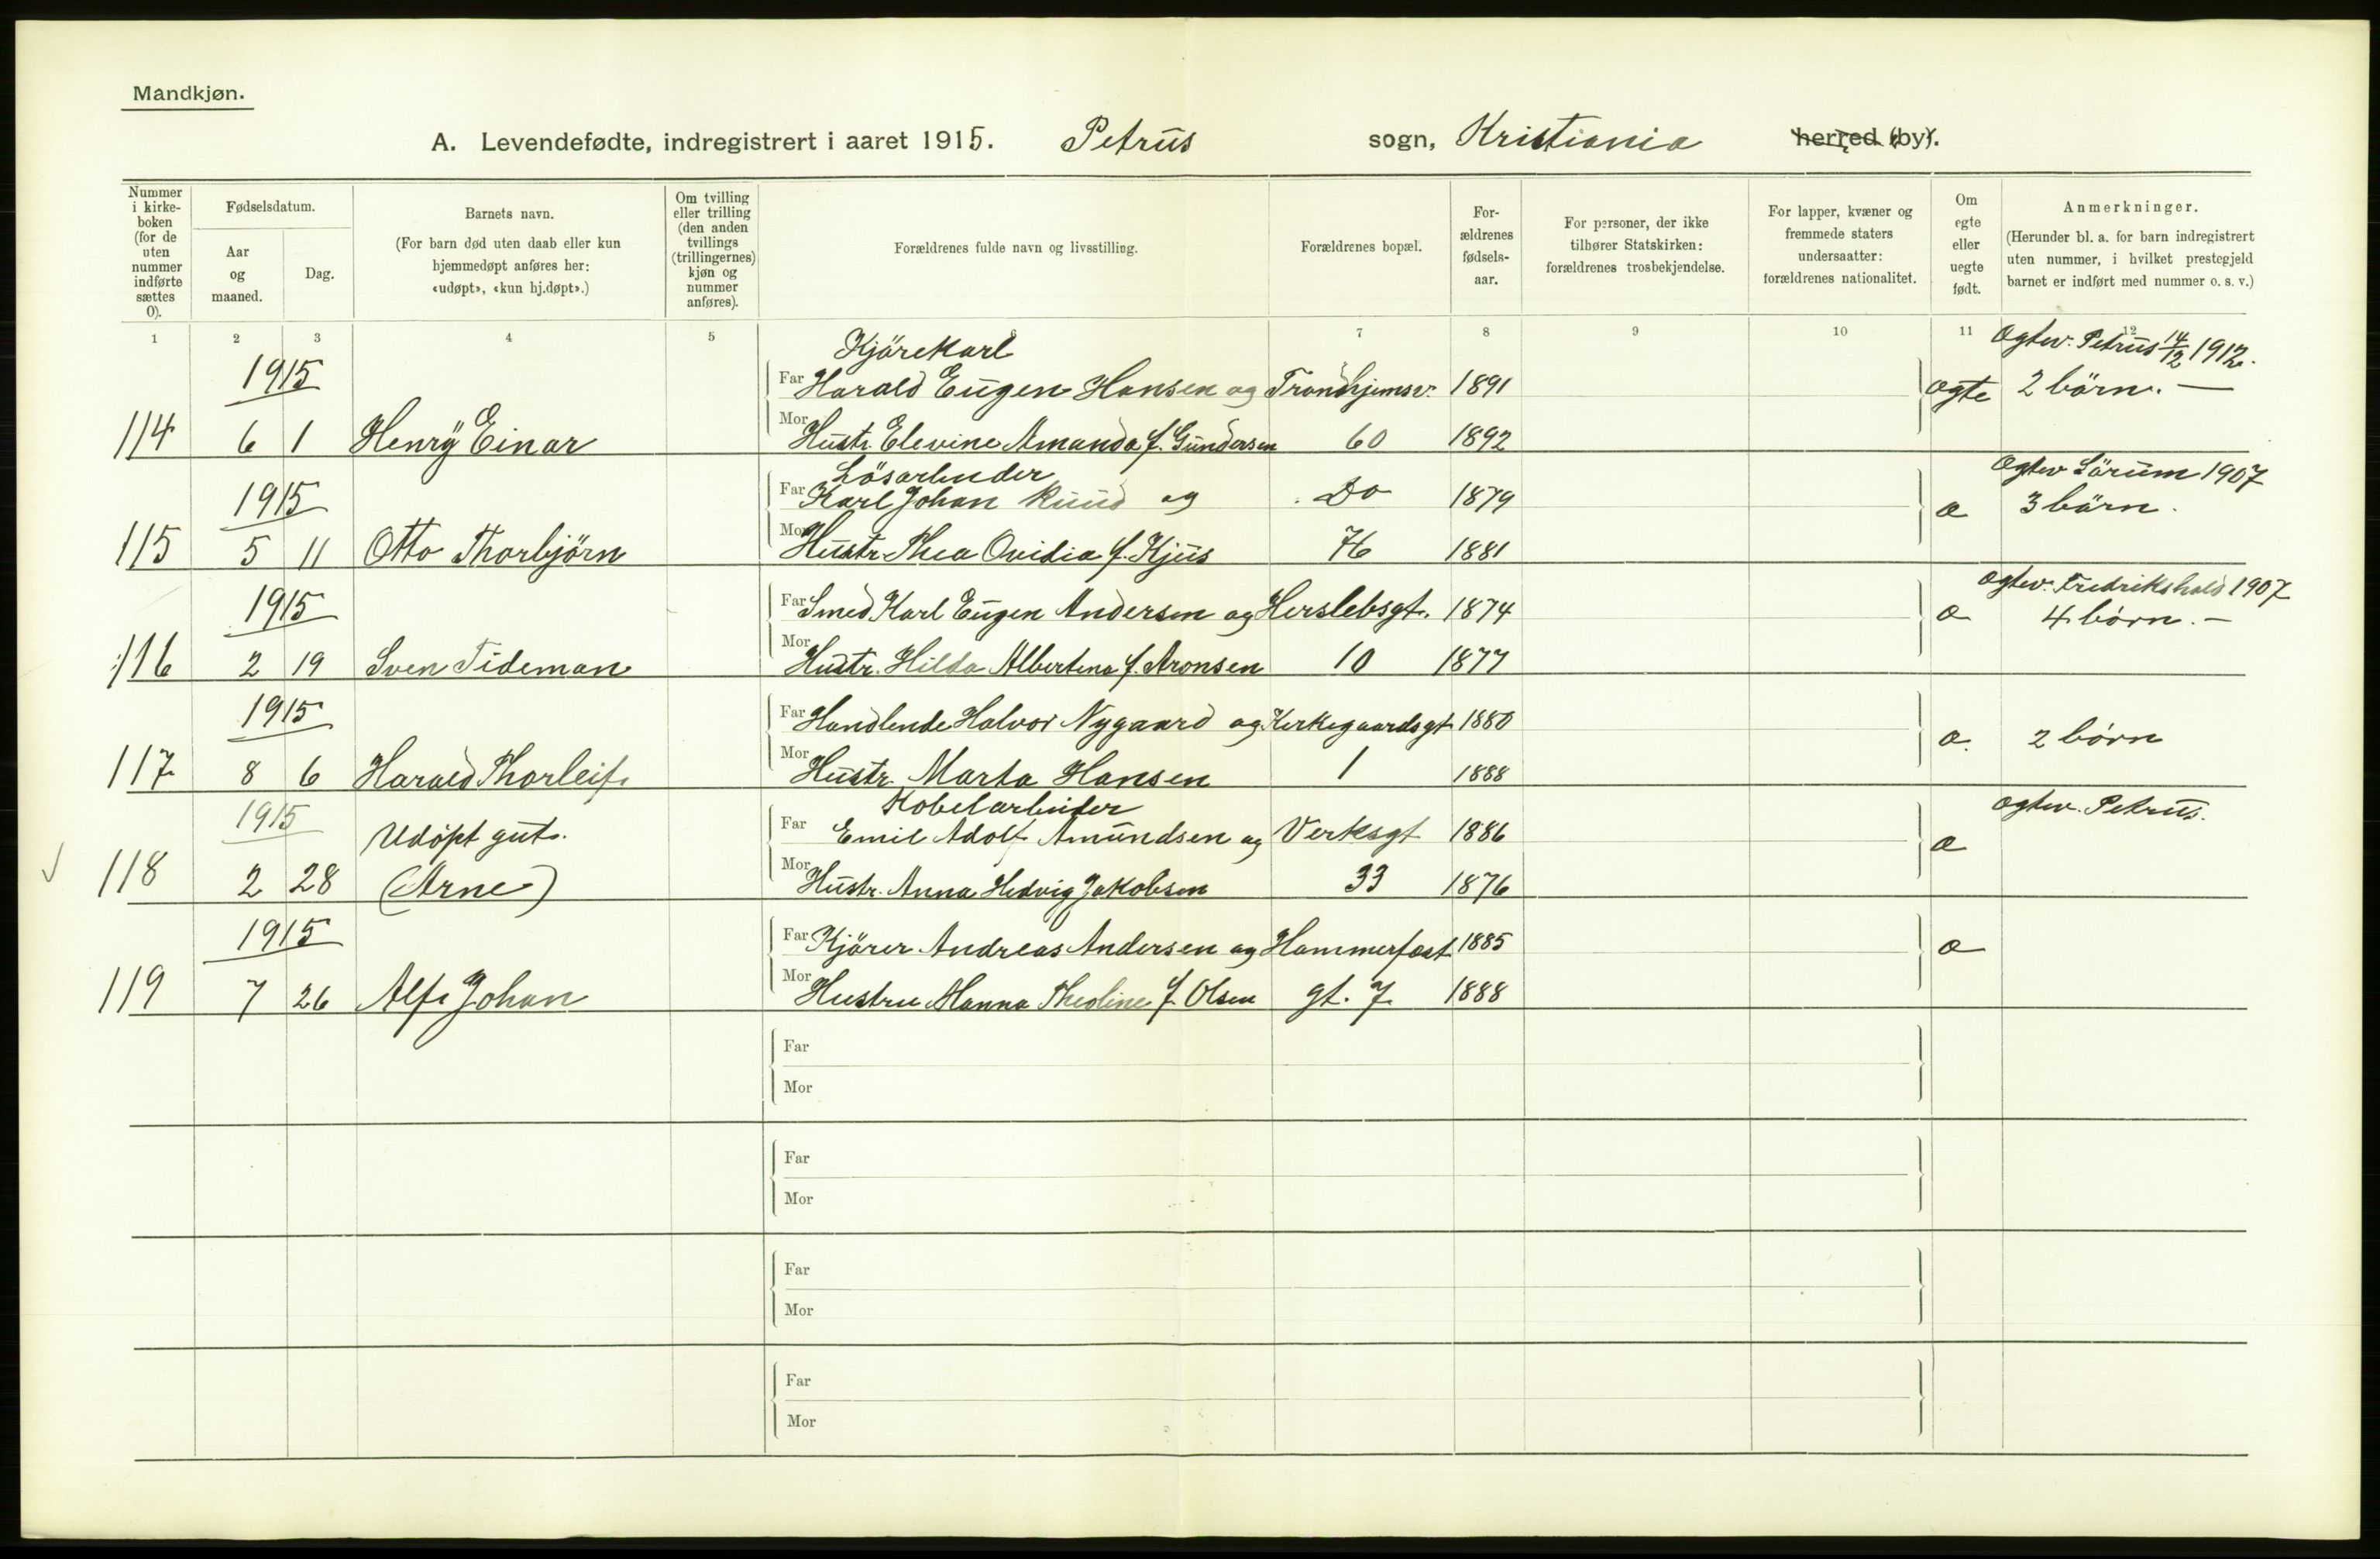 Mandkjøn.
A. Levendefødte, indregistrert i aaret 1915. Petrus sogn, Kristiania herred (by).
Nummer i kirke-boken (for de uten nummer indførte sættes 0).
Fødselsdatum.
Aar og maaned.
Dag.
Barnets navn.
(For barn død uten daab eller kun hjemmedøpt anføres her: «udøpt», «kun hj.døpt».)
Om tvilling eller trilling (den anden tvillings (trillingernes) kjøn og nummer anføres).
Forældrenes fulde navn og livsstilling.
Forældrenes bopæl.
For-ældrenes fødsels-aar.
For personer, der ikke tilhører Statskirken: forældrenes trosbekjendelse.
For lapper, kvæner og fremmede staters undersaatter: forældrenes nationalitet.
Om egte eller uegte født.
Anmerkninger.
(Herunder bl. a. for barn indregistrert uten nummer, i hvilket prestegjeld barnet er indført med nummer o. s. v.)
1 2 3 4 5 6 7 8 9 10 11 12
Kjörekarl Ogtev. Petrus 14/12 1912.
1915 Far Harald Eugen Hansen og Trondhjemsv. 1891 ogte 2 börn. —
114 6 1 Henrÿ Einar Mor Hustr. Elevine Amanda f. Gundersen 60 1892
Lösarbeider Ogtev Sörum 1907
1915 Far Karl Johan Ruud og Do 1879 o 3 börn.
115 5 11 Otto Thorbjörn Mor Hustr Thea Ovidia f. Kjus 76 1881
Ogtev. Fredrikshald 1907
1915 Far Smed Karl Eugen Andersen og Herslebsgt. 1874 o 4 börn. —
116 2 19 Sven Tideman Mor Hustr. Hilda Albertina f. Aronsen 10 1877
1915 Far Handlende Halvor Nygaard og Kirkegaardsgt 1880 o. 2 börn
117 8 6 Harald Thorleif. Mor Hustr. Marta Hansen 1 1888
Kobelarbeider Ogtev. Petrus.
1915 Udöpt gut. Far Emil Adolf Amundsen og Verksgt 1886 o
118 2 28 (Arne) Mor Hustr. Anna Hedvig Jakobsen 33 1876
1915 Far Kjörer Andreas Andersen og Hammerfest 1885 o
119 7 26 Alf Johan Mor Hustru Hanna Theoline f. Olsen gt. 7. 1888
Far
Mor
Far
Mor
Far
Mor
Far
Mor